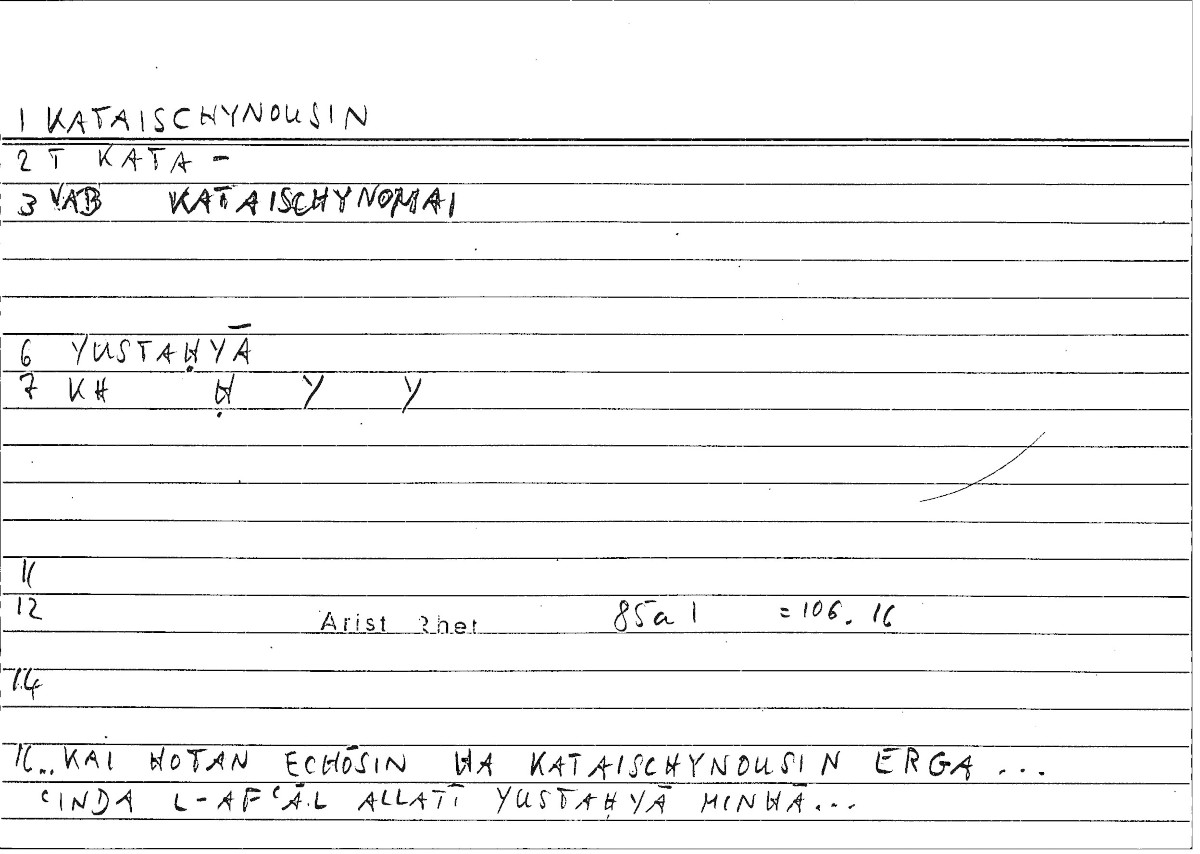 1 KATAISCHYNOUSIN
2 T KATA -
3 VAB KATAISCHYNOMAI
6 YUSTAḤYĀ
7 KH Ḥ Y Y
11
12 Arist Rhet 85a 1 = 106. 16
14
16.. KAI HOTAN ECHŌSIN HA KATAISCHYNOUSIN ERGA ...
ʿINDA L-AFʿĀL ALLATĪ YUSTAḤYĀ MINHĀ...